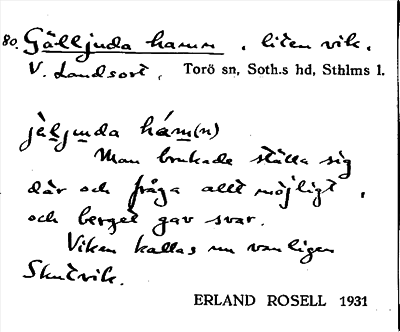 80. Gälljuda hamn, liten vik,
V. Landsort, Torö sn, Soth.s hd, Sthlms l.
jäljuda hám(n)
Man brukade ställa sig
där och fråga allt möjligt,
och berget gav svar.
Viken kallas nu vanligen
Skutvik.
ERLAND ROSELL 1931